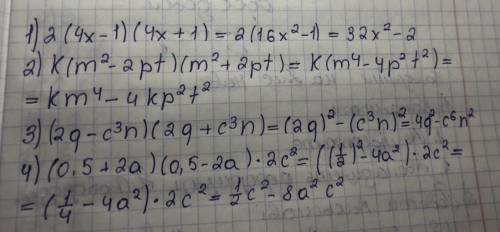 1) 2(4x-1)(4x+1) = 2(16x²-1) = 32x²-2
2) K(m²-2pt)(m²+2pt) = K(m⁴-4p²t²) =
= Km⁴-4kp²t²
3) (2q-c³n)(2q+c³n) = (2q)²-(c³n)² = 4q²-c⁶n²
4) (0,5+2a)(0,5-2a)·2c² = ((1/2)²-4a²)·2c² =
= (1/4-4a²)·2c² = 1/2c²-8a²c²